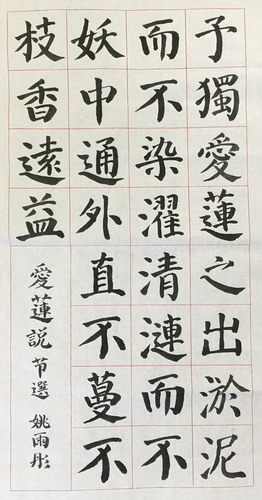 予獨愛蓮之出淤泥
而不染濯清漣而不
妖中通外直不蔓不
枝香遠益
愛蓮說 节選 姚雨彤